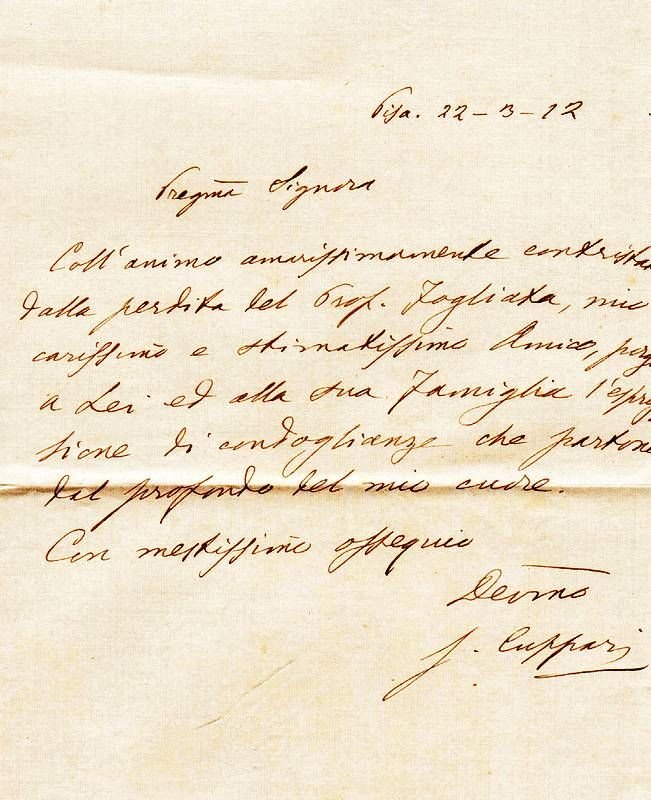 Pisa. 22-3-12
Pregma Signora
Coll'animo amarissimamente contrista
dalla perdita del Prof. Fogliata, mio
carissimo e stimatissimo Amico, porg
a Lei ed alla sua Famiglia l'espres
sione di condoglianze che partono
dal profondo del mio cuore.
Con mestissimo ossequio
Devmo
G. Cuppari